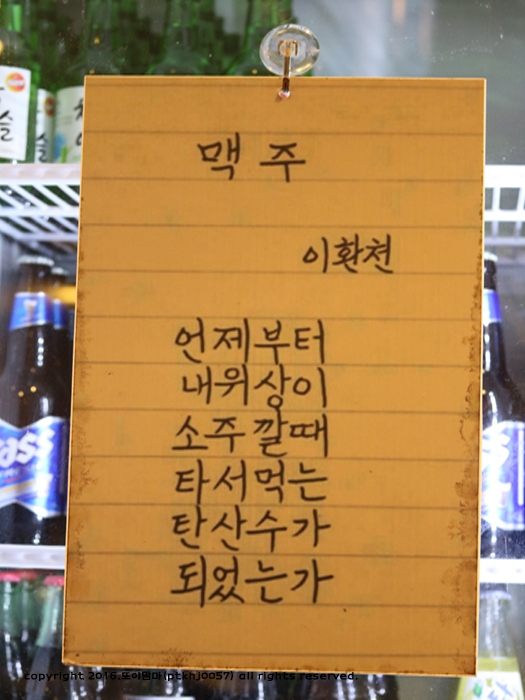 맥 주
이환천
언제부터
내위상이
소주깔때
타서먹는
탄산수가
되었는가
슬
슬
ass
copyright 2016.또이맘마(ptkhj0057) all rights reserved.